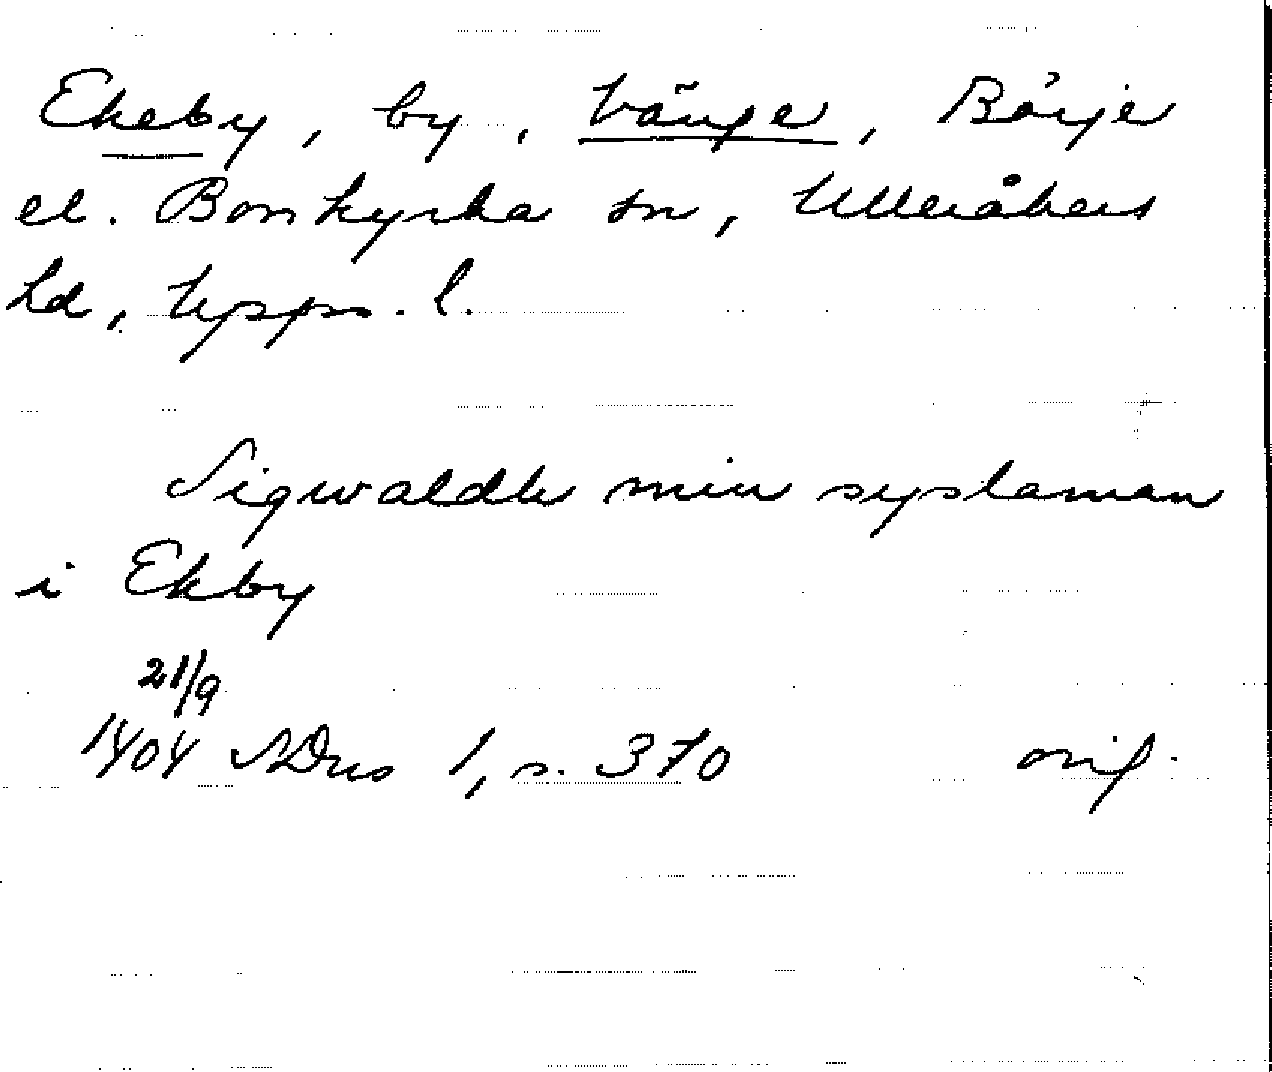 Ekeby, by, Vänge, Börje
el. Bon kyrka sn, Ulleråkers
hd, Upps. l.
Sigwaldh min sysslaman
i Ekby
21/9
1404 SDns 1, s. 370 orig.